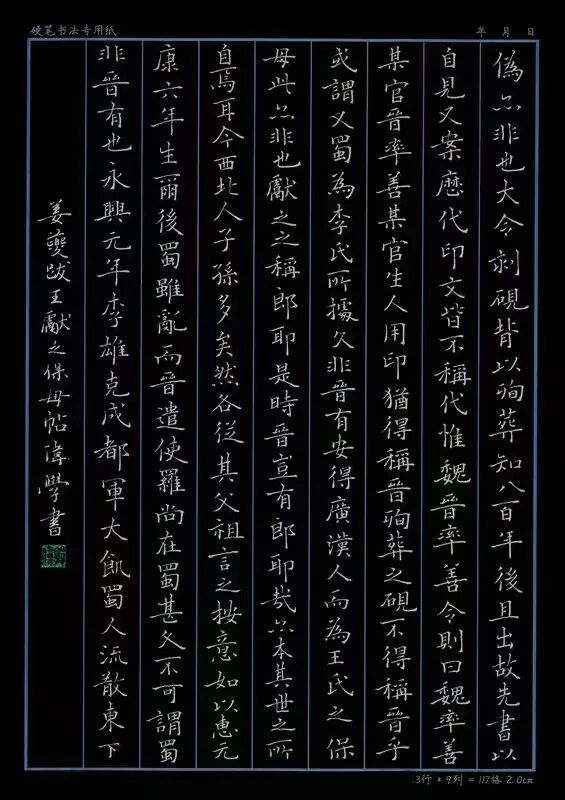 硬笔书法专用纸
年 月 日
偽亦非也大令剥硯背以殉葬知八百年後且出故先書以
自見又案歷代印文皆不稱代惟魏晉率善令則曰魏率善
某官晉率善某官生人用印猶得稱晉殉葬之硯不得稱晉乎
或謂又蜀為李氏所據久非晉有安得廣漢人而為王氏之保
母此亦非也獻之之稱郎耶是時晉豈有郎耶哉亦本其世之所
自焉耳今西北人子孫多矣然各從其父祖言之按意如以惠元
康六年生爾後蜀雖亂而晉遣使羅尚在蜀甚久不可謂蜀
非晉有也永興元年李雄克成都軍大飢蜀人流散東下
姜夔跋王獻之保母帖偉學書
13行 * 9列 = 117格 2.0cm